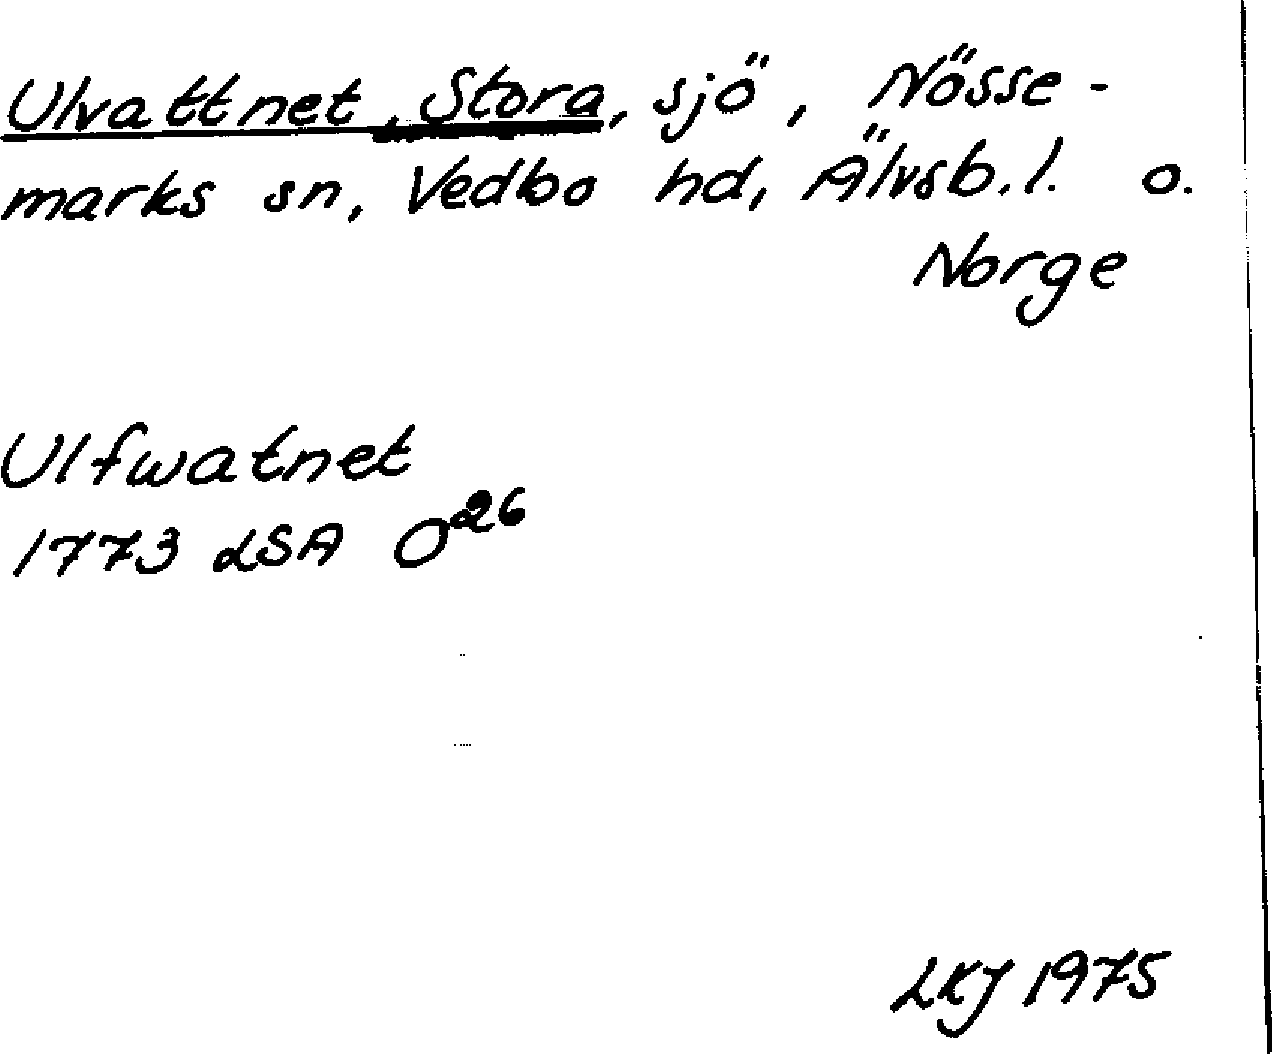 Ulvattnet, Stora, sjö, Nösse-
marks sn, Vedbo hd, Älvsb.l. o.
Norge
Ulfwatnet
1773 LSA O26
LKJ 1975